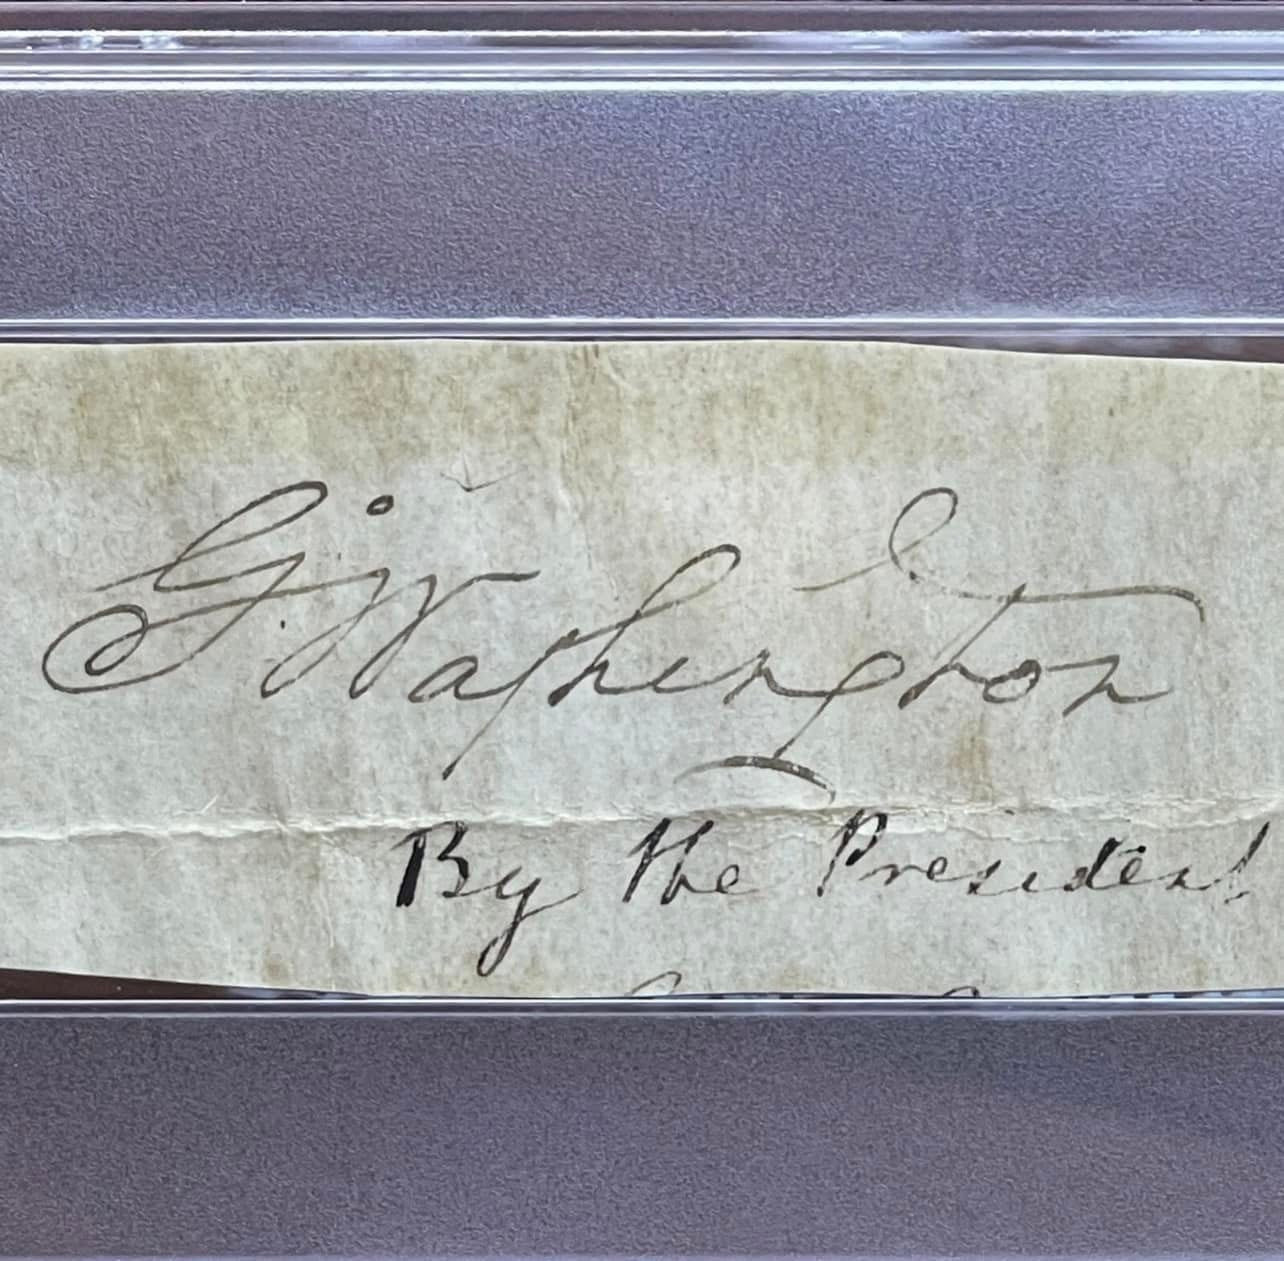 G: Washington
By the President